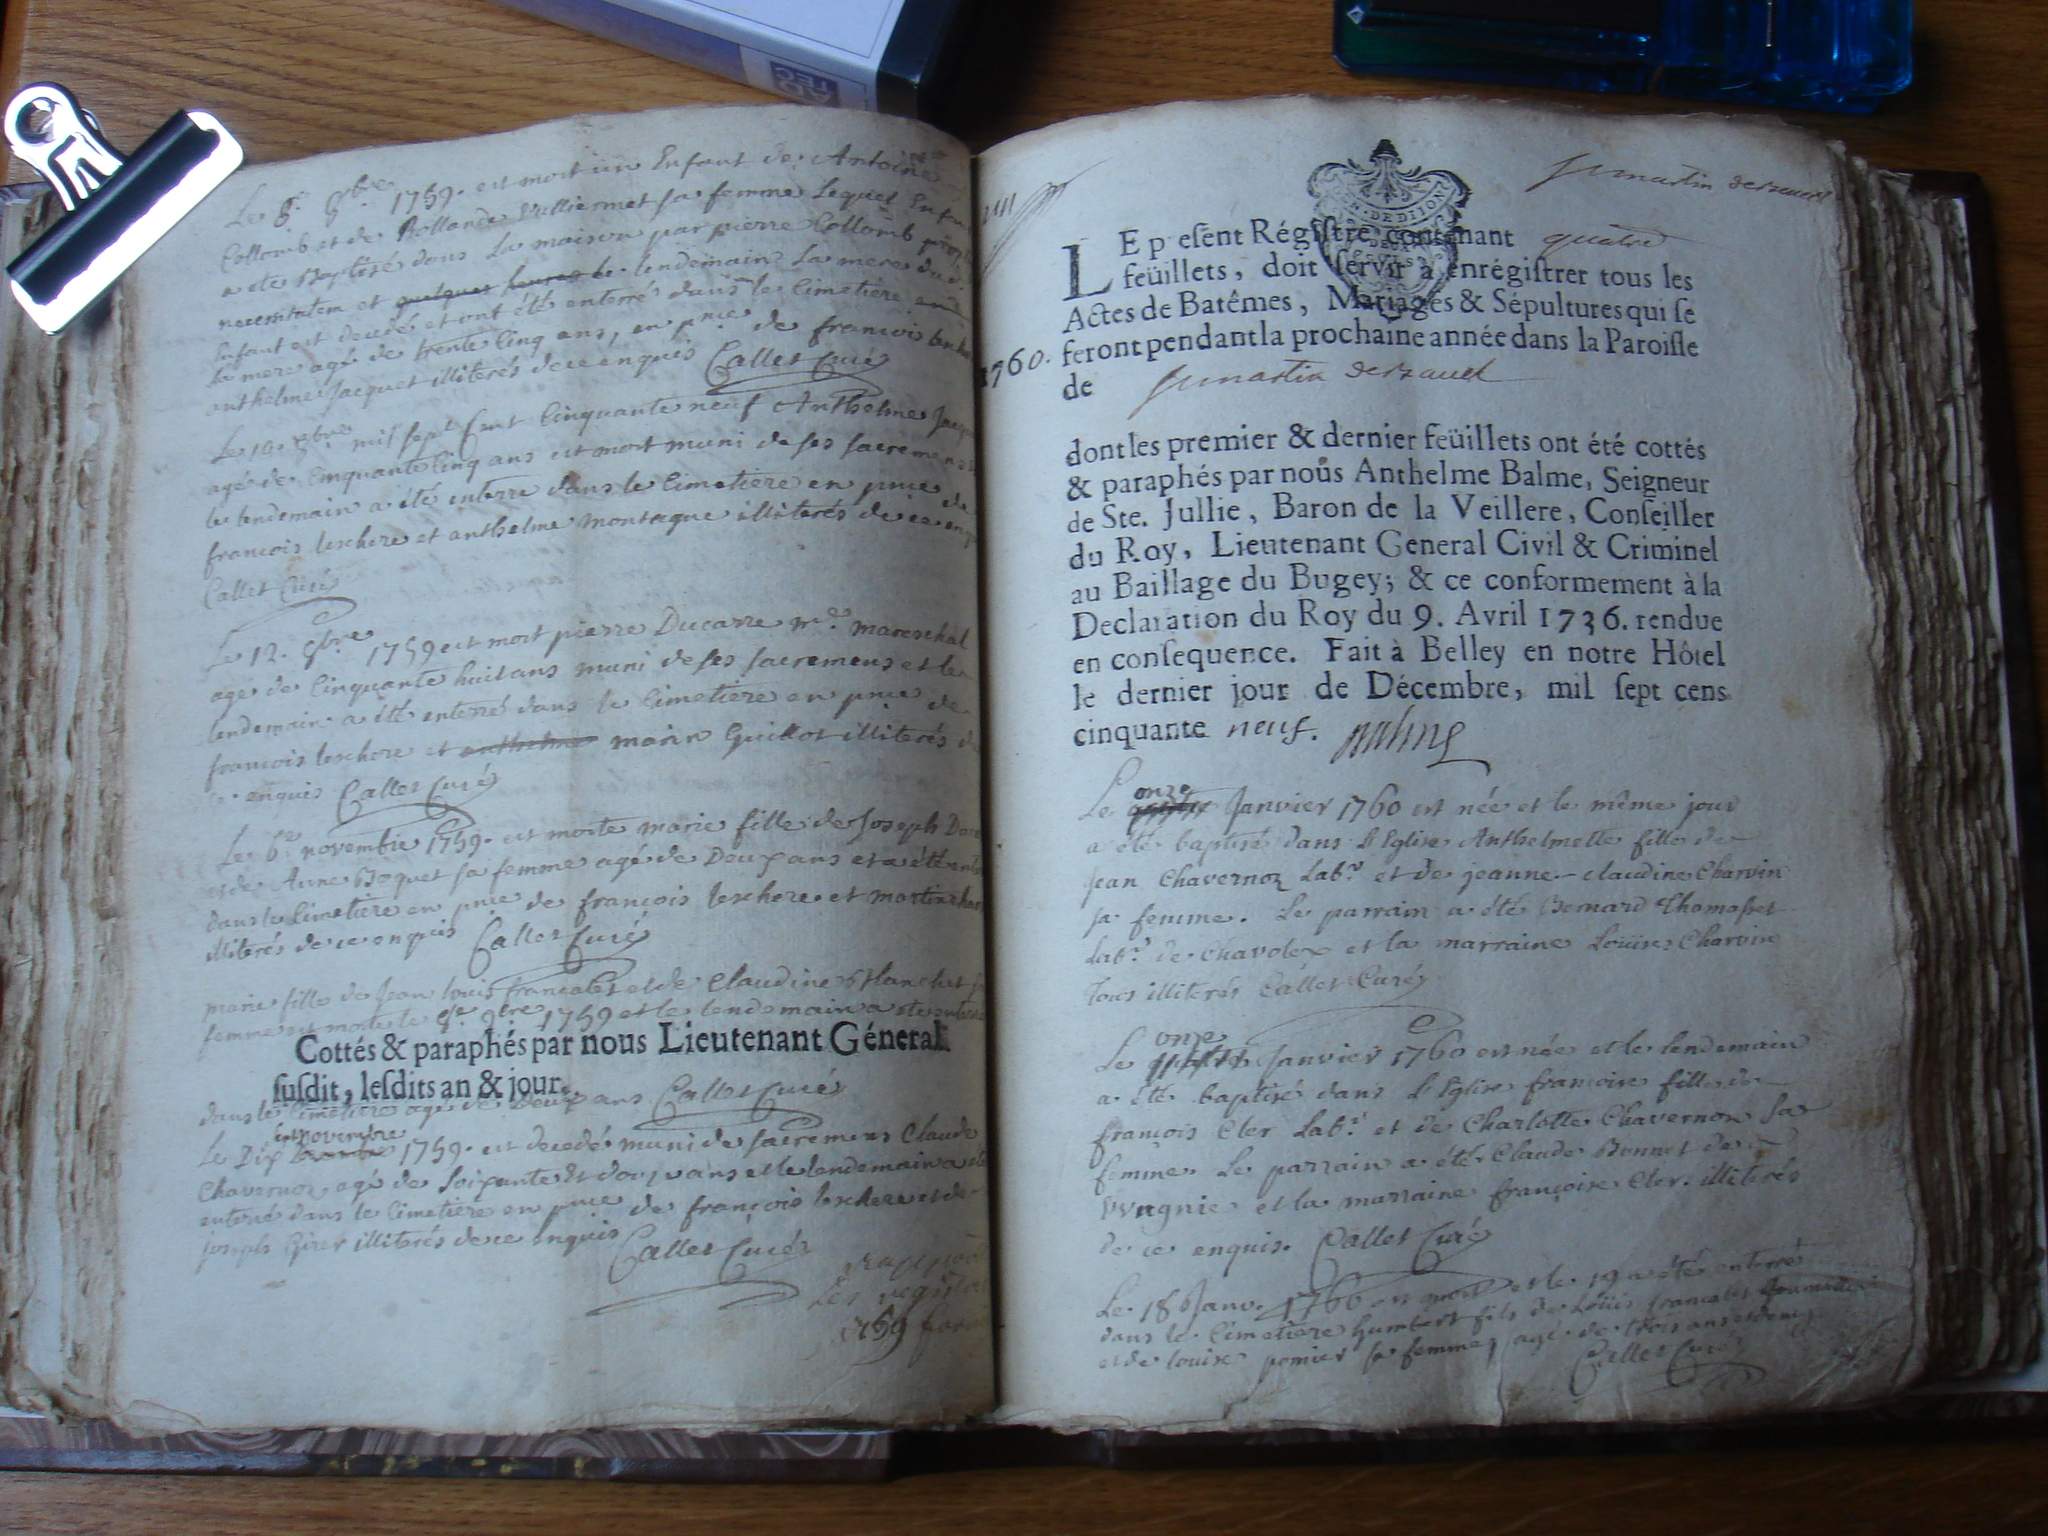 Le 8.e 8bre 1759. est mort un Enfant de Antoine
Collomb et de Rollande Vulliermet sa femme Lequel Enfant
a été Baptisé dans La maison par pierre Collomb
necessitatem et quelques heures le lendemain La mere dud.
Enfant est decedé et ont été enterrés dans le Cimetiere
La mere agé de trente Cinq ans, en pnce de francois leschere
anthelme Jacquet illiterés de ce enquis Callet Curé
mil sept Cent Cinquante neuf Anthelme
agé de Cinquante Cinq ans est mort muni de ses sacremens
le lendemain a été enterré dans le Cimetiere en pnce de
francois leschere et anthelme montagne illiterés de ce
Callet Curé
Le 12. 9bre 1759 est mort pierre Ducarre me. mareschal
agé de Cinquante huit ans muni de ses sacremens et le
lendemain a été enterré dans le Cimetiere en pnce de
francois leschere et anthelme marin Guillot illiterés de
ce enquis Callet Curé
Le 6e novembre 1759. est morte marie fille de Joseph
et de Anne Boquet sa femme agé de Deux ans et a été
dans le Cimetiere en pnce de françois leschere et martin
illiterés de ce enquis Callet Curé
marie fille de Jean louis francalet et de Claudine Blanchet
femme est morte le 9bre 1759 et le lendemain a été enterré
Cottés & paraphés par nous Lieutenant Géneral
susdit, lesdits an & jour.
dans le Cimetiere agé de Deux ans Callet Curé
Le Dix sept novembre 1759. est decedé muni de sacremens Claude
Chavernoz agé de Soixante Et douze ans et le lendemain a été
enterré dans le Cimetiere en pnce de françois leschere et de
joseph illiterés de ce enquis
Callet Curé
1759
GEN. DE DIJON
DEUX
Jt martin de
LE présent Régistre contenant quatre
feüillets, doit servir à enrégistrer tous les
Actes de Batêmes, Mariages & Sépultures qui se
1760. feront pendant la prochaine année dans la Paroisse
de St martin de
dont les premier & dernier feüillets ont été cottés
& paraphés par nous Anthelme Balme, Seigneur
de Ste. Jullie, Baron de la Veillere, Conseiller
du Roy, Lieutenant General Civil & Criminel
au Baillage du Bugey; & ce conformement à la
Declaration du Roy du 9. Avril 1736. rendue
en consequence. Fait à Belley en notre Hôtel
le dernier jour de Décembre, mil sept cens
cinquante neuf. Balme
onze
Le Janvier 1760 est née et le même jour
a été baptisé dans l'Eglise Anthelmette fille de
Jean Chavernoz Labr. et de jeanne claudine Charvin
sa femme. Le parrain a été Bernard Thomasset
Labr. de Chavolex et la marraine Louise Charvin
Tous illiterés Callet Curé
onze
Le Janvier 1760 est née et le lendemain
a été baptisé dans l'Eglise francoise fille de
françois Cler Labr. et de Charlotte Chavernoz Sa
femme Le parrain a été Claude Bonnet de
Vugnie et la marraine françoise Cler. illiterés
de ce enquis. Callet Curé
Le 18 Janv. 1760 est mort et le 19 a été enterré
dans le Cimetiere humbert fils de Loüis francalet
et de louise pomier sa femme, agé de trois ans et demi
Callet Curé